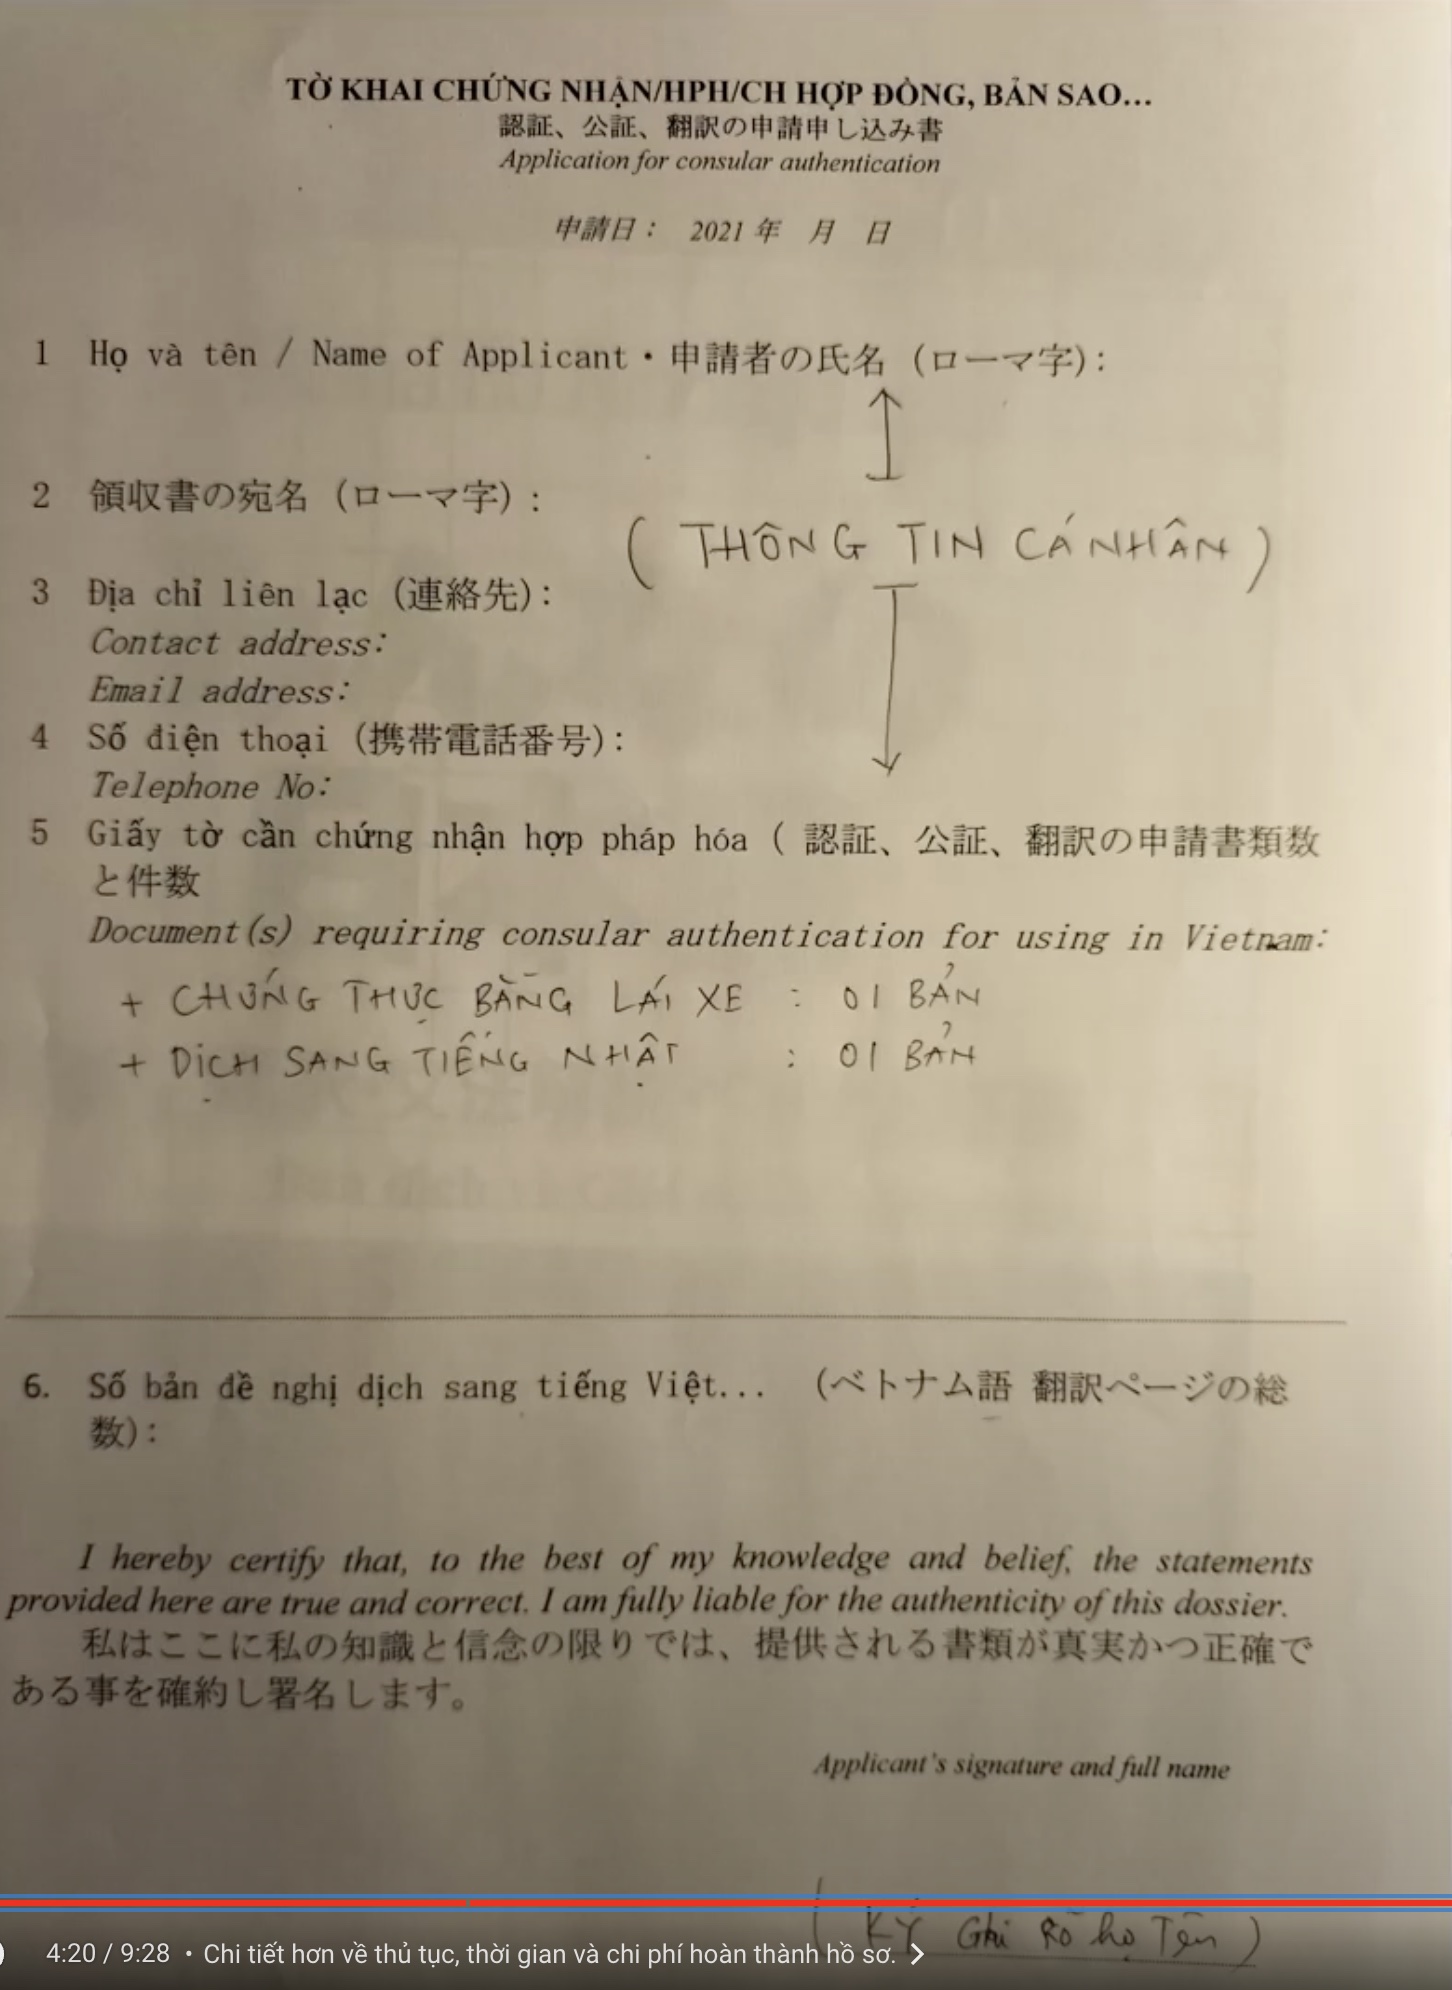 TỜ KHAI CHỨNG NHẬN/HPH/CH HỢP ĐỒNG, BẢN SAO...
認証、公証、翻訳の申請申し込み書
Application for consular authentication
申請日： 2021 年 月 日
1 Họ và tên / Name of Applicant・申請者の氏名 (ローマ字):
2 領収書の宛名 (ローマ字) :
( THÔNG TIN CÁ NHÂN )
3 Địa chỉ liên lạc (連絡先):
Contact address:
Email address:
4 Số điện thoại (携帯電話番号):
Telephone No:
5 Giấy tờ cần chứng nhận hợp pháp hóa ( 認証、公証、翻訳の申請書類数
と件数
Document(s) requiring consular authentication for using in Vietnam:
+ CHỨNG THỰC BẰNG LÁI XE : 01 BẢN
+ DỊCH SANG TIẾNG NHẬT : 01 BẢN
6. Số bản đề nghị dịch sang tiếng Việt... (ベトナム語 翻訳ページの総
数):
I hereby certify that, to the best of my knowledge and belief, the statements
provided here are true and correct. I am fully liable for the authenticity of this dossier.
私はここに私の知識と信念の限りでは、提供される書類が真実かつ正確で
ある事を確約し署名します。
Applicant's signature and full name
( KÝ Ghi Rõ họ Tên )
4:20 / 9:28 • Chi tiết hơn về thủ tục, thời gian và chi phí hoàn thành hồ sơ. >